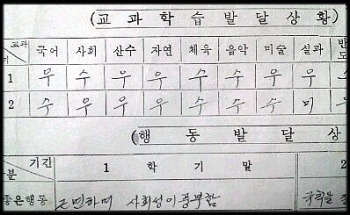 (교과학습발달상황)
교과 국어 사회 산수 자연 체육 음악 미술 실과 반
1 우 수 우 우 수 수 우 우
2 수 우 우 우 수 수 수 미 우
(행동발달상
기간 1 학기말 2
분
좋은행동 근면하며 사회성이 풍부함